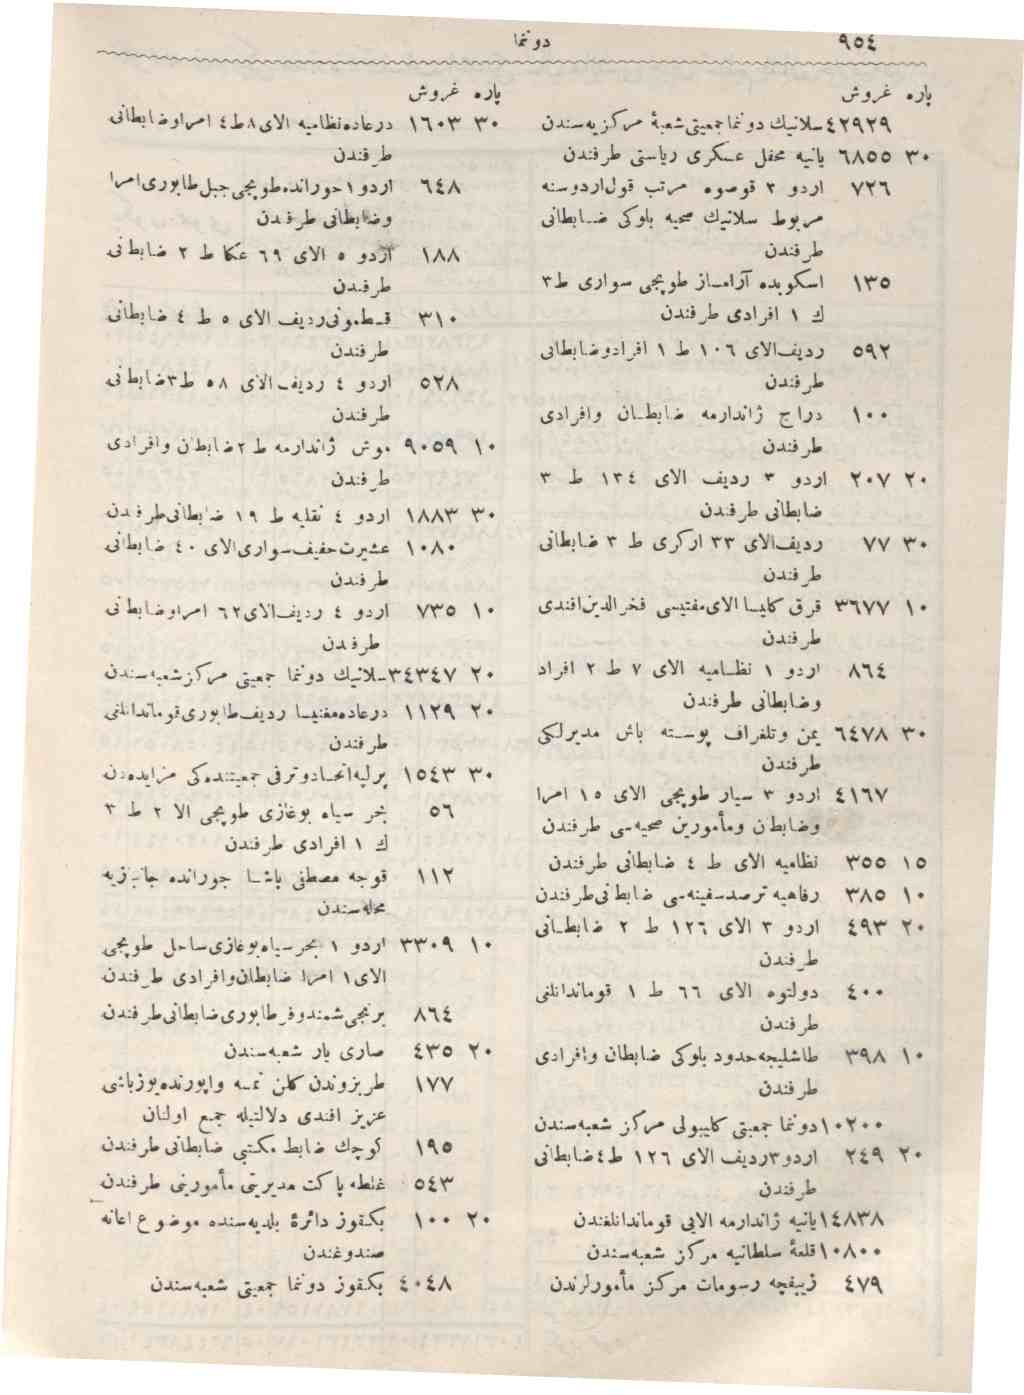 ٩٥٤
دوننما
پاره غروش
٤٢٩٢٩ سلانيك دوننما جمعيتى شعبۀ مركزيه‌سندن
٣٠ ٦٨٥٥ يانيه محفل عسكرى رياستى طرفندن
٧٢٦ اردو ٢ قوصوه مرتب قول اردوسنه
مربوط سلانيك صحيه بلوكى ضابطانى
طرفندن
١٣٥ اسكوبده آرامساز طوپجى سوارى ط ٣
ك ١ افرادى طرفندن
٥٩٢ رديف الاى ١٠٦ ط ١ افراد وضابطانى
طرفندن
١٠٠ دراج ژاندارمه ضابطان وافرادى
طرفندن
٢٠ ٢٠٧ اردو ٣ رديف الاى ١٣٤ ط ٣
ضابطانى طرفندن
٣٠ ٧٧ رديف الاى ٣٣ اركرى ط ٣ ضابطانى
طرفندن
١٠ ٣٦٧٧ قرق كليسا الاى مفتيسى فخرالدين افندى
طرفندن
٨٦٤ اردو ١ نظاميه الاى ٧ ط ٢ افراد
وضابطانى طرفندن
٣٠ ٦٤٧٨ يمن وتلغراف پوسته باش مديرلكى
طرفندن
٤١٦٧ اردو ٣ سيار طوپجى الاى ١٥ امرا
وضابطان ومأمورين صحيه‌سى طرفندن
١٥ ٣٥٥ نظاميه الاى ط ٤ ضابطانى طرفندن
١٠ ٣٨٥ رفاهيه ترصد سفينه‌سى ضابطانى طرفندن
٢٠ ٤٩٣ اردو ٣ الاى ١٢٦ ط ٢ ضابطانى
طرفندن
٤٠٠ دولتوه الاى ٦٦ ط ١ قوماندانلغى
طرفندن
١٠ ٣٩٨ طاشليجه حدود بلوكى ضابطان وافرادى
طرفندن
١٠٢٠٠ دوننما جمعيتى كليبولى مركز شعبه‌سندن
٢٠ ٢٤٩ اردو ٣ رديف الاى ١٢٦ ط ٤ ضابطانى
طرفندن
١٤٨٣٨ يانيه ژاندارمه الايى قوماندانلغندن
١٠٨٠٠ قلعۀ سلطانيه مركز شعبه‌سندن
٤٧٩ زيبفچه رسومات مركز مأمورلرندن
پاره غروش
٣٠ ١٦٠٣ درعاده نظاميه الاى ٨ ط ٤ امرا وضابطانى
طرفندن
٦٤٨ اردو ١ حورانده طوپجى جبل طابورى امرا
وضابطانى طرفندن
١٨٨ اردو ٥ الاى ٦٩ عكا ط ٢ ضابطانى
طرفندن
٣١٠ قسطمونى رديف الاى ٥ ط ٤ ضابطانى
طرفندن
٥٢٨ اردو ٤ رديف الاى ٥٨ ط ٣ ضابطانى
طرفندن
١٠ ٩٠٥٩ موش ژاندارمه ط ٢ ضابطان وافرادى
طرفندن
٣٠ ١٨٨٣ اردو ٤ نقليه ط ١٩ ضابطانى طرفندن
١٠٨٠ عشيرت خفيف سوارى الاى ٤٠ ضابطانى
طرفندن
١٠ ٧٣٥ اردو ٤ رديف الاى ٦٢ امرا وضابطانى
طرفندن
٢٠ ٣٤٣٤٧ سلانيك دوننما جمعيتى مركز شعبه‌سندن
٢٠ ١١٢٩ درعاده مغنيسا رديف طابورى قوماندانلغى
طرفندن
٣٠ ١٥٤٣ پرلپه اتحاد وترقى جمعيتنده‌كى مزايده‌دن
٥٦ بحر سياه بوغازى طوپجى الا ٢ ط ٣
ك ١ افرادى طرفندن
١١٢ قوجه مصطفى پاشا جورانده جانبازيه
محله‌سندن
١٠ ٣٣٠٩ اردو ١ بحر سياه بوغازى ساحل طوپجى
الاى ١ امرا ضابطان وافرادى طرفندن
٨٦٤ برنجى شمندوفر طابورى ضابطانى طرفندن
٢٠ ٤٣٥ صارى يار شعبه‌سندن
١٧٧ طربزوندن كلن نمسه واپورنده يوزباشى
عزيز افندى دلالتيله جمع اولنان
١٩٥ كوچك ضابط مكتبى ضابطانى طرفندن
٥٤٣ غلطه پاكت مديريتى مأمورينى طرفندن
٢٠ ١٠٠ بكقوز دائرۀ بلديه‌سنده موضوع اعانه
صندوغندن
٤٠٤٨ بكقوز دوننما جمعيتى شعبه‌سندن